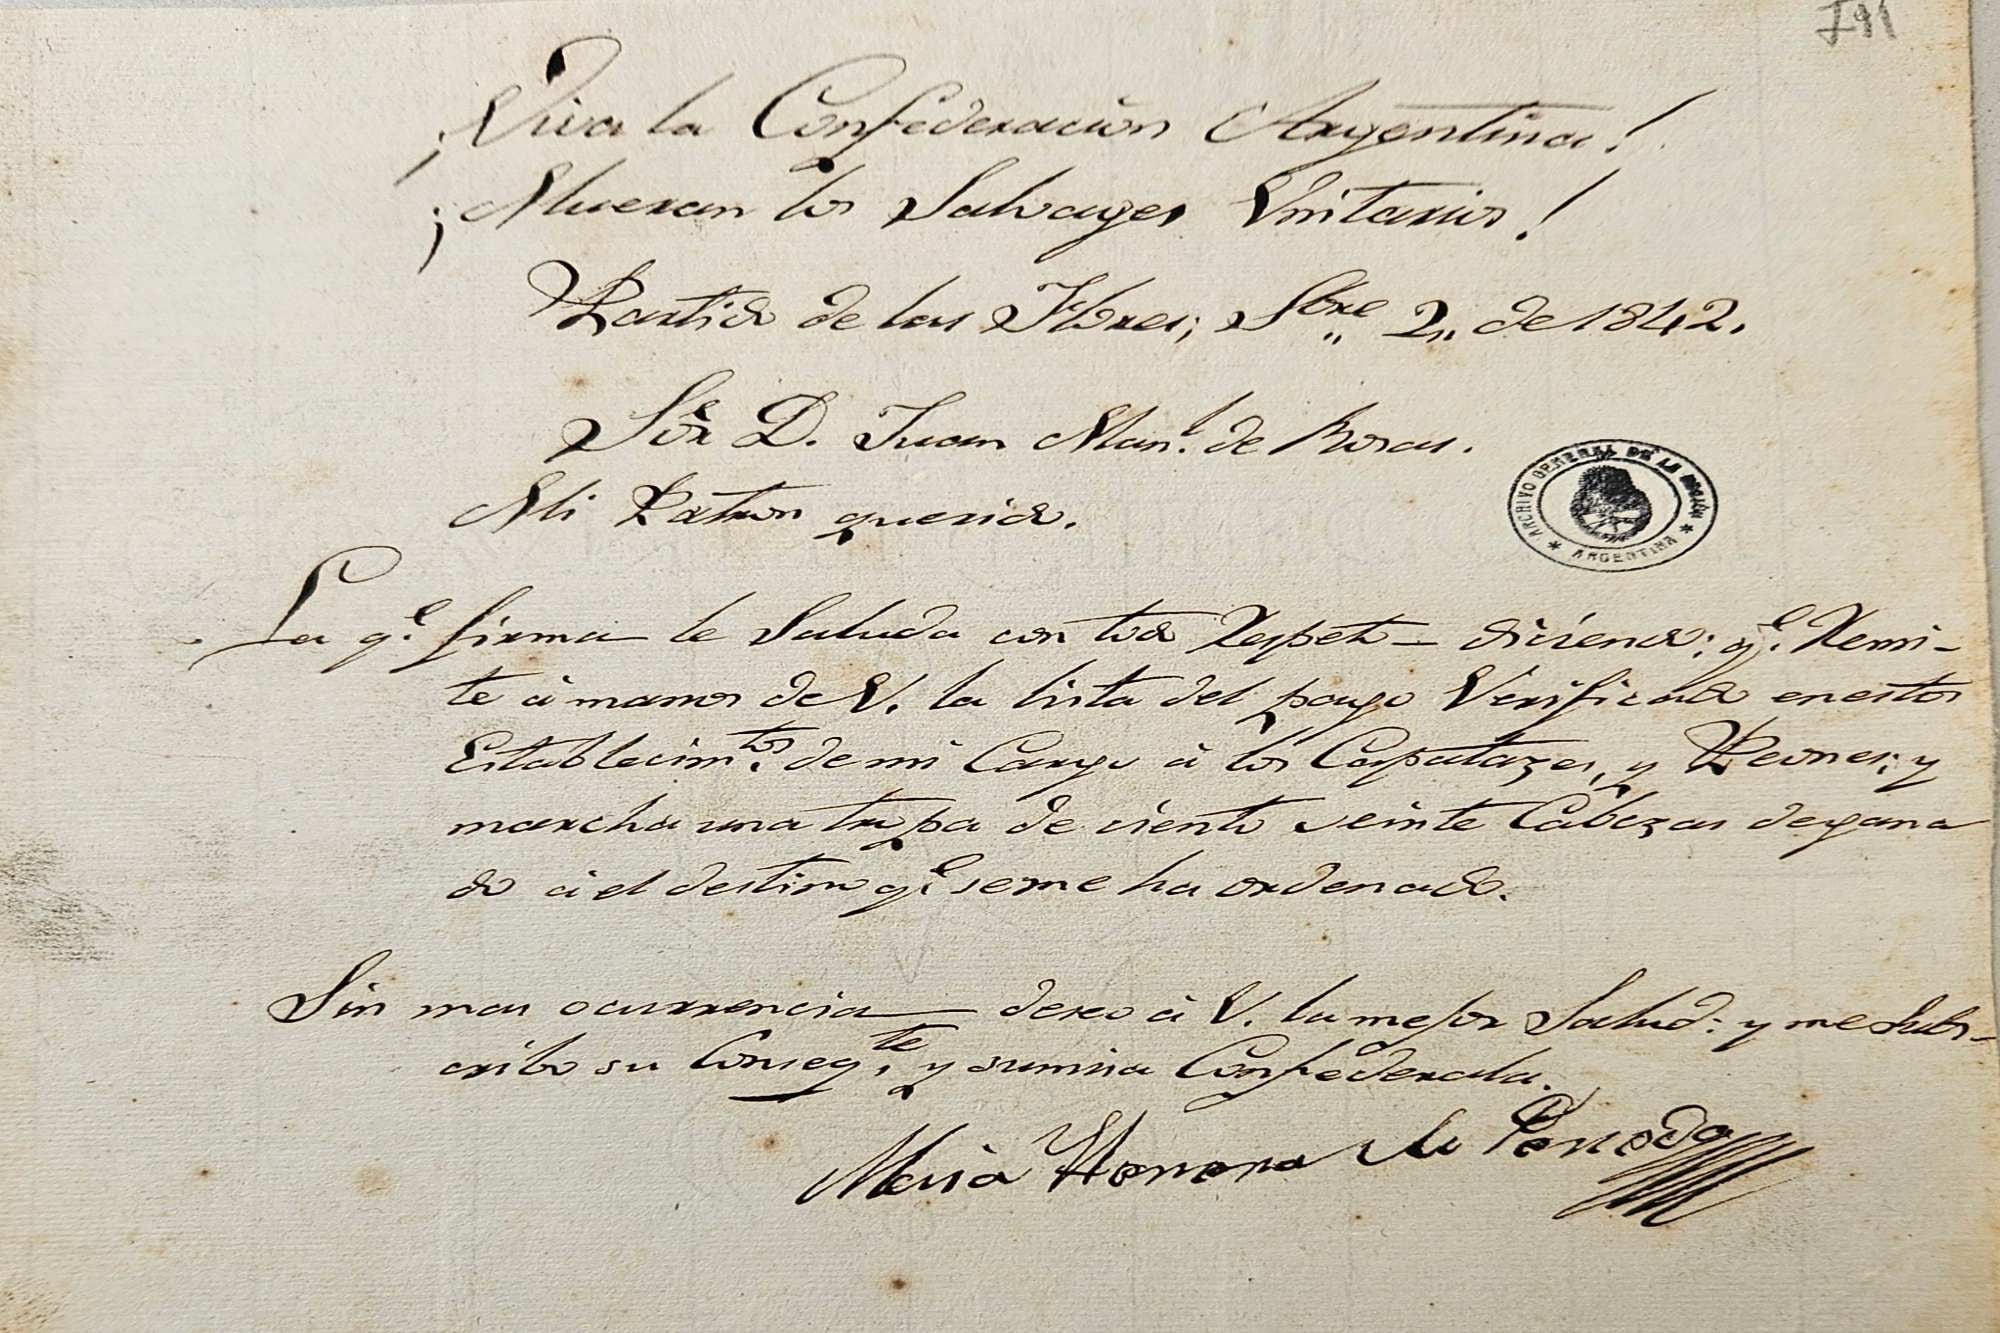 791
¡Viva la Confederacion Argentina!
¡Mueran los Salvages Unitarios!
Partido de las Flores, Sbre 2,, de 1842.
Sor D. Juan Manl. de Rosas.
Mi Patron querido.
ARCHIVO GENERAL DE LA NACION
* ARGENTINA *
La qe. firma le Saluda con todo Respeto - diciendo: qe. Remi-
te á manos de V. la lista del pago Verificado en estos
Establecimtos. de mi Cargo á los Capatazes, y Peones; y
marcha una tropa de ciento veinte Cabezas de gana
do á el destino qe. se me ha ordenado.
Sin mas ocurrencia deseo á V. la mejor Salud: y me Subs-
cribo su Conseqte. y sumisa Confederada.
Maria Honora de